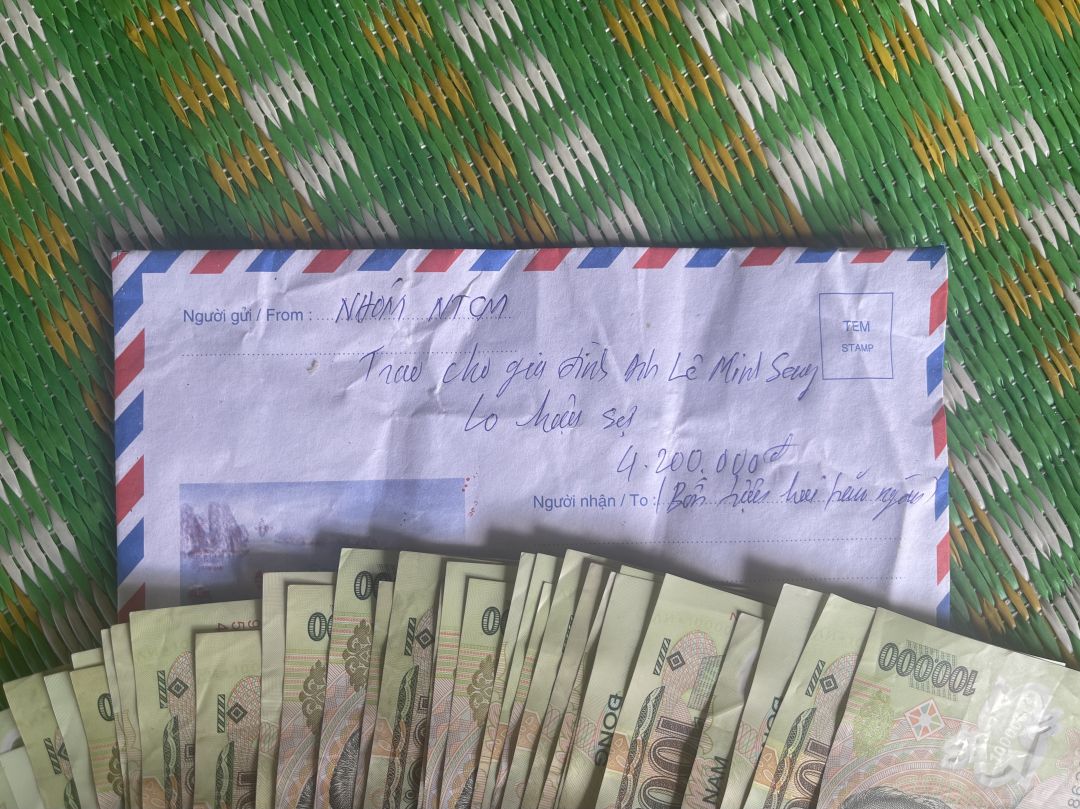 Người gửi / From : NHÓM NTCM
TEM
STAMP
Trao cho gia đình Anh Lê Minh Sang
Lo hậu sự
4.200.000đ
Người nhận / To : (Bốn triệu hai trăm ngàn)
100000
DONG
NAM